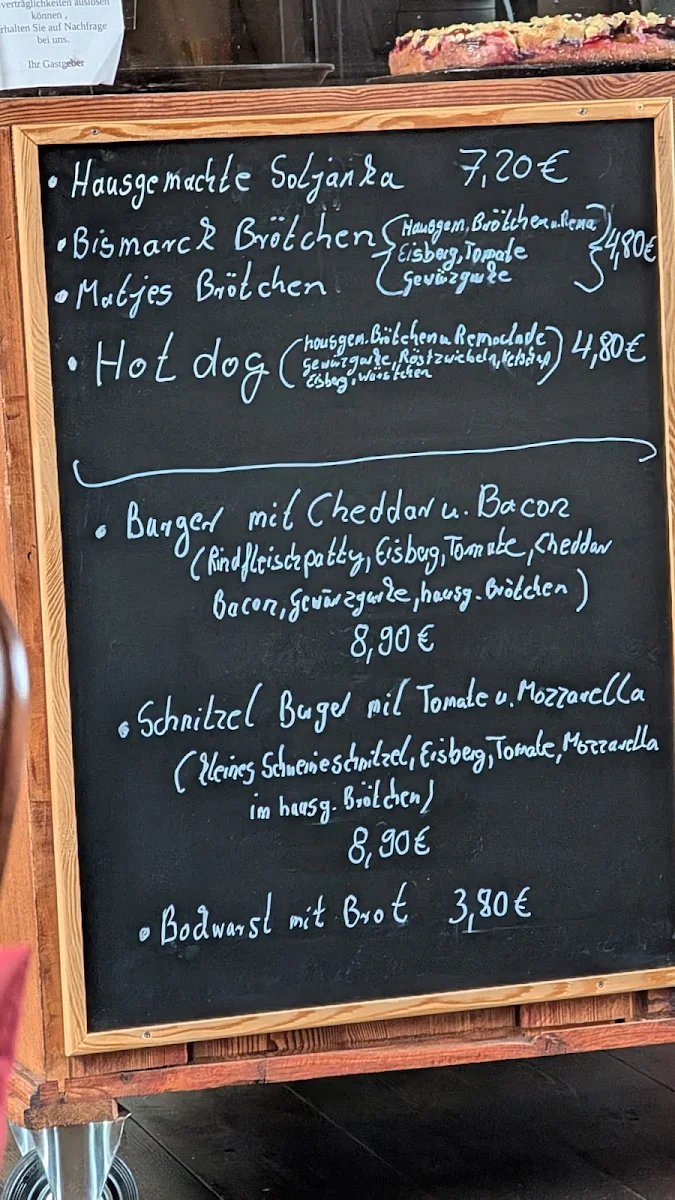 verträglichkeiten auslösen
können ,
rhalten Sie auf Nachfrage
bei uns.
Ihr Gastgeber
• Hausgemachte Soljanka 7,20€
• Bismarck Brötchen
• Matjes Brötchen
Hausgem. Brötchen u. Rema
Eisberg, Tomate
Gewürzgurke
4,80€
• Hot dog (hausgem. Brötchen u. Remoulade
Gewürzgurke, Röstzwiebeln, Ketchup
Eisberg, Würstchen) 4,80€
• Burger mit Cheddar u. Bacon
(Rindfleischpatty, Eisberg, Tomate, Cheddar
Bacon, Gewürzgurke, hausg. Brötchen)
8,90€
• Schnitzel Burger mit Tomate u. Mozzarella
(kleines Schweineschnitzel, Eisberg, Tomate, Mozzarella
im hausg. Brötchen)
8,90€
• Bockwurst mit Brot 3,80€